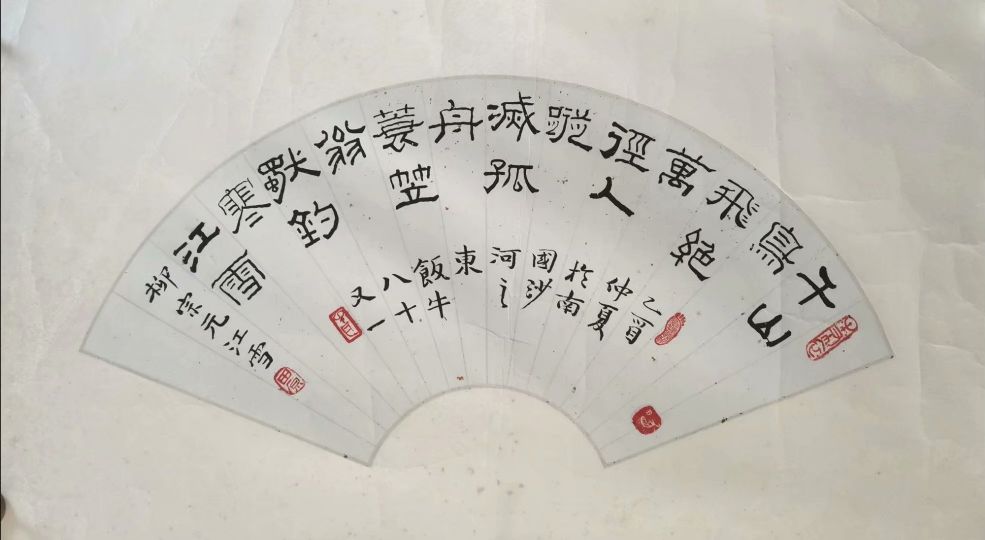 千山
鳥
飛絕
萬
徑人
蹤
滅孤
舟
蓑笠
翁
獨釣
寒
江雪
柳宗元江雪
乙酉
仲夏
於南
國沙
河之
東
飯牛
八十
又一